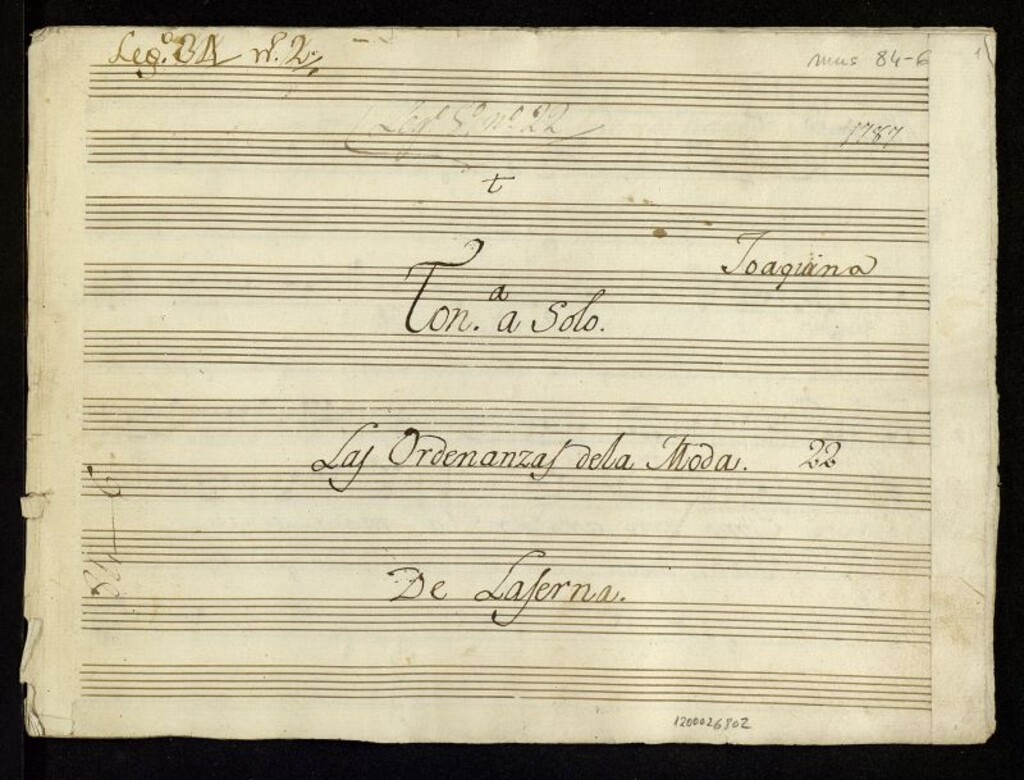 Leg.º 34 nº. 2.
mus 84-6
1
Legº 5º nº. 22
1787
t
Joaquina
Ton.a a Solo.
Las Ordenanzas dela Moda. 22
De Laserna.
1200026802